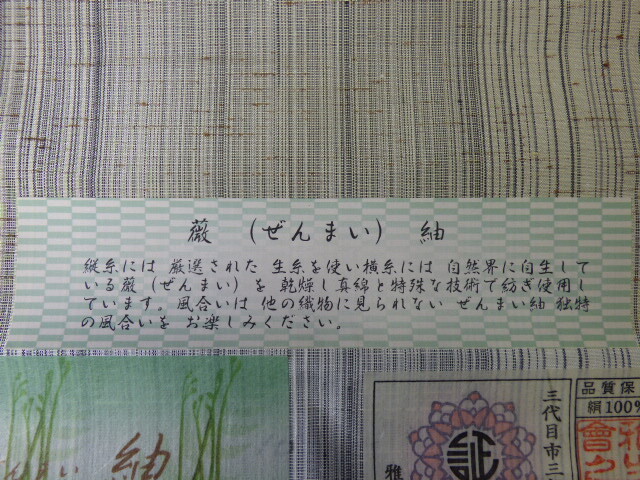 薇 （ぜんまい） 紬
縦糸には 厳選された 生糸を使い横糸には 自然界に自生して
いる薇（ぜんまい）を 乾燥し真綿と特殊な技術で紡ぎ使用し
ています。風合いは 他の織物に見られない ぜんまい紬 独特
の風合いを お楽しみください。
んまい 紬
証
三代目市三
雅
品質保
絹100%